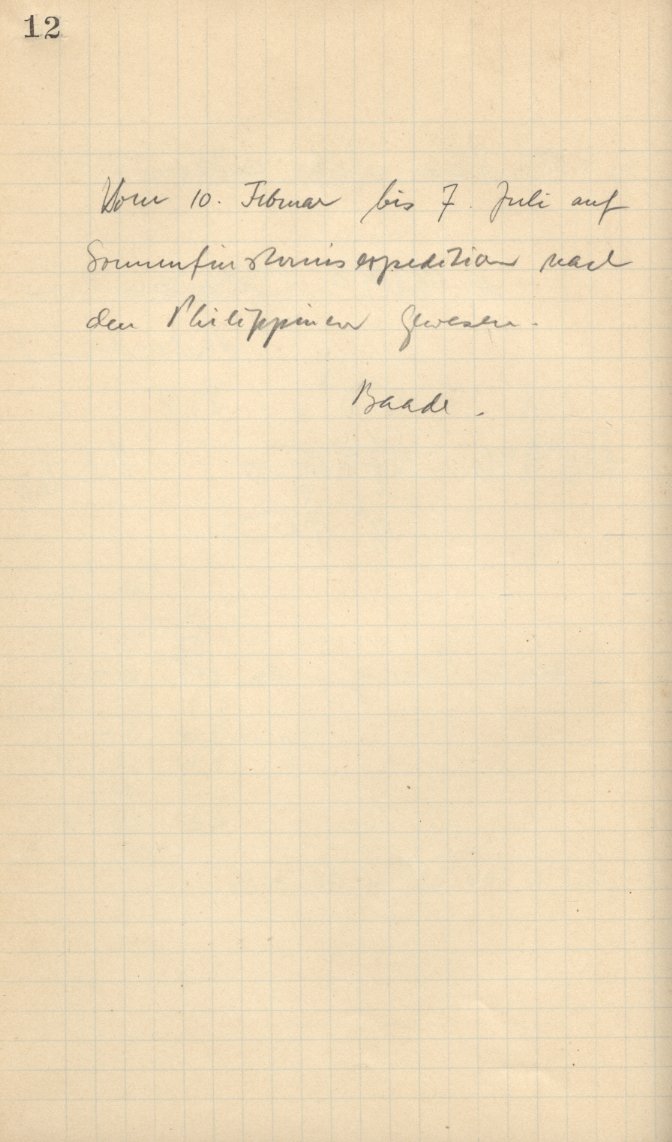 12
Vom 10. Februar bis 7. Juli auf
Sonnenfinsternisexpedition nach
den Philippinen gewesen.
Baade.